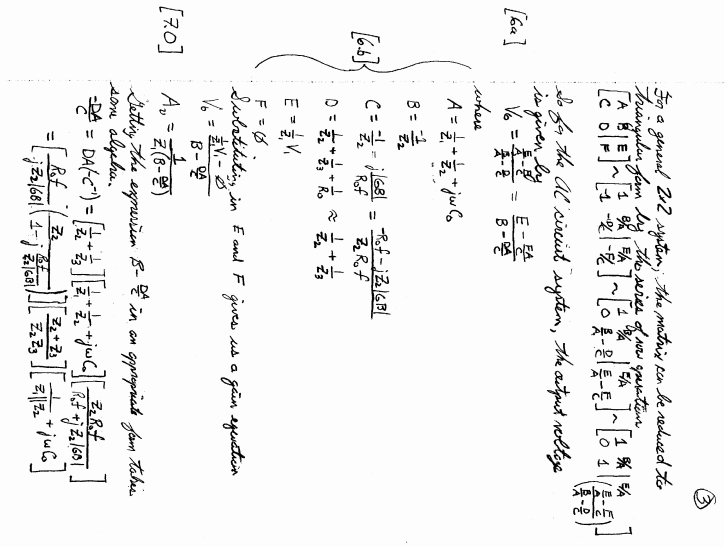 ③
For a general 2x2 system, the matrix can be reduced to
triangular form by the series of row operation
[A B|E; C D|F] ~ [1 B/A|E/A; -1 -D/C|-F/C] ~ [1 B/A|E/A; 0 B/A-D/C|E/A-F/C] ~ [1 B/A|E/A; 0 1|(E/A-F/C)/(B/A-D/C)]
So for the AC circuit system, the output voltage
is given by
[6a] V₀ = (E/A - F/C)/(B/A - D/C) = (E - FA/C)/(B - DA/C)
where
[6b] A = 1/Z₁ + 1/Z₂ + jωC₀
B = -1/Z₂
C = -1/Z₂ - j|GB|/R₀f = (-R₀f - jZ₂|GB|)/(Z₂R₀f)
D = 1/Z₂ + 1/Z₃ + 1/R₀ ≈ 1/Z₂ + 1/Z₃
E = 1/Z₁ V₁
F = Ø
Substituting in E and F gives us a gain equation
V₀ = (1/Z₁ V₁ - Ø)/(B - DA/C)
[7.0] A_v = 1/(Z₁(B - DA/C))
Getting the expression B - DA/C in an appropriate form takes
some algebra.
-DA/C = DA(-C⁻¹) = [1/Z₂ + 1/Z₃][1/Z₁ + 1/Z₂ + jωC₀][Z₂R₀f/(R₀f + jZ₂|GB|)]
= [R₀f/(jZ₂|GB|) (Z₂/(1 - j R₀f/(Z₂|GB|)))][(Z₂+Z₃)/(Z₂Z₃)][1/(Z₁||Z₂) + jωC₀]